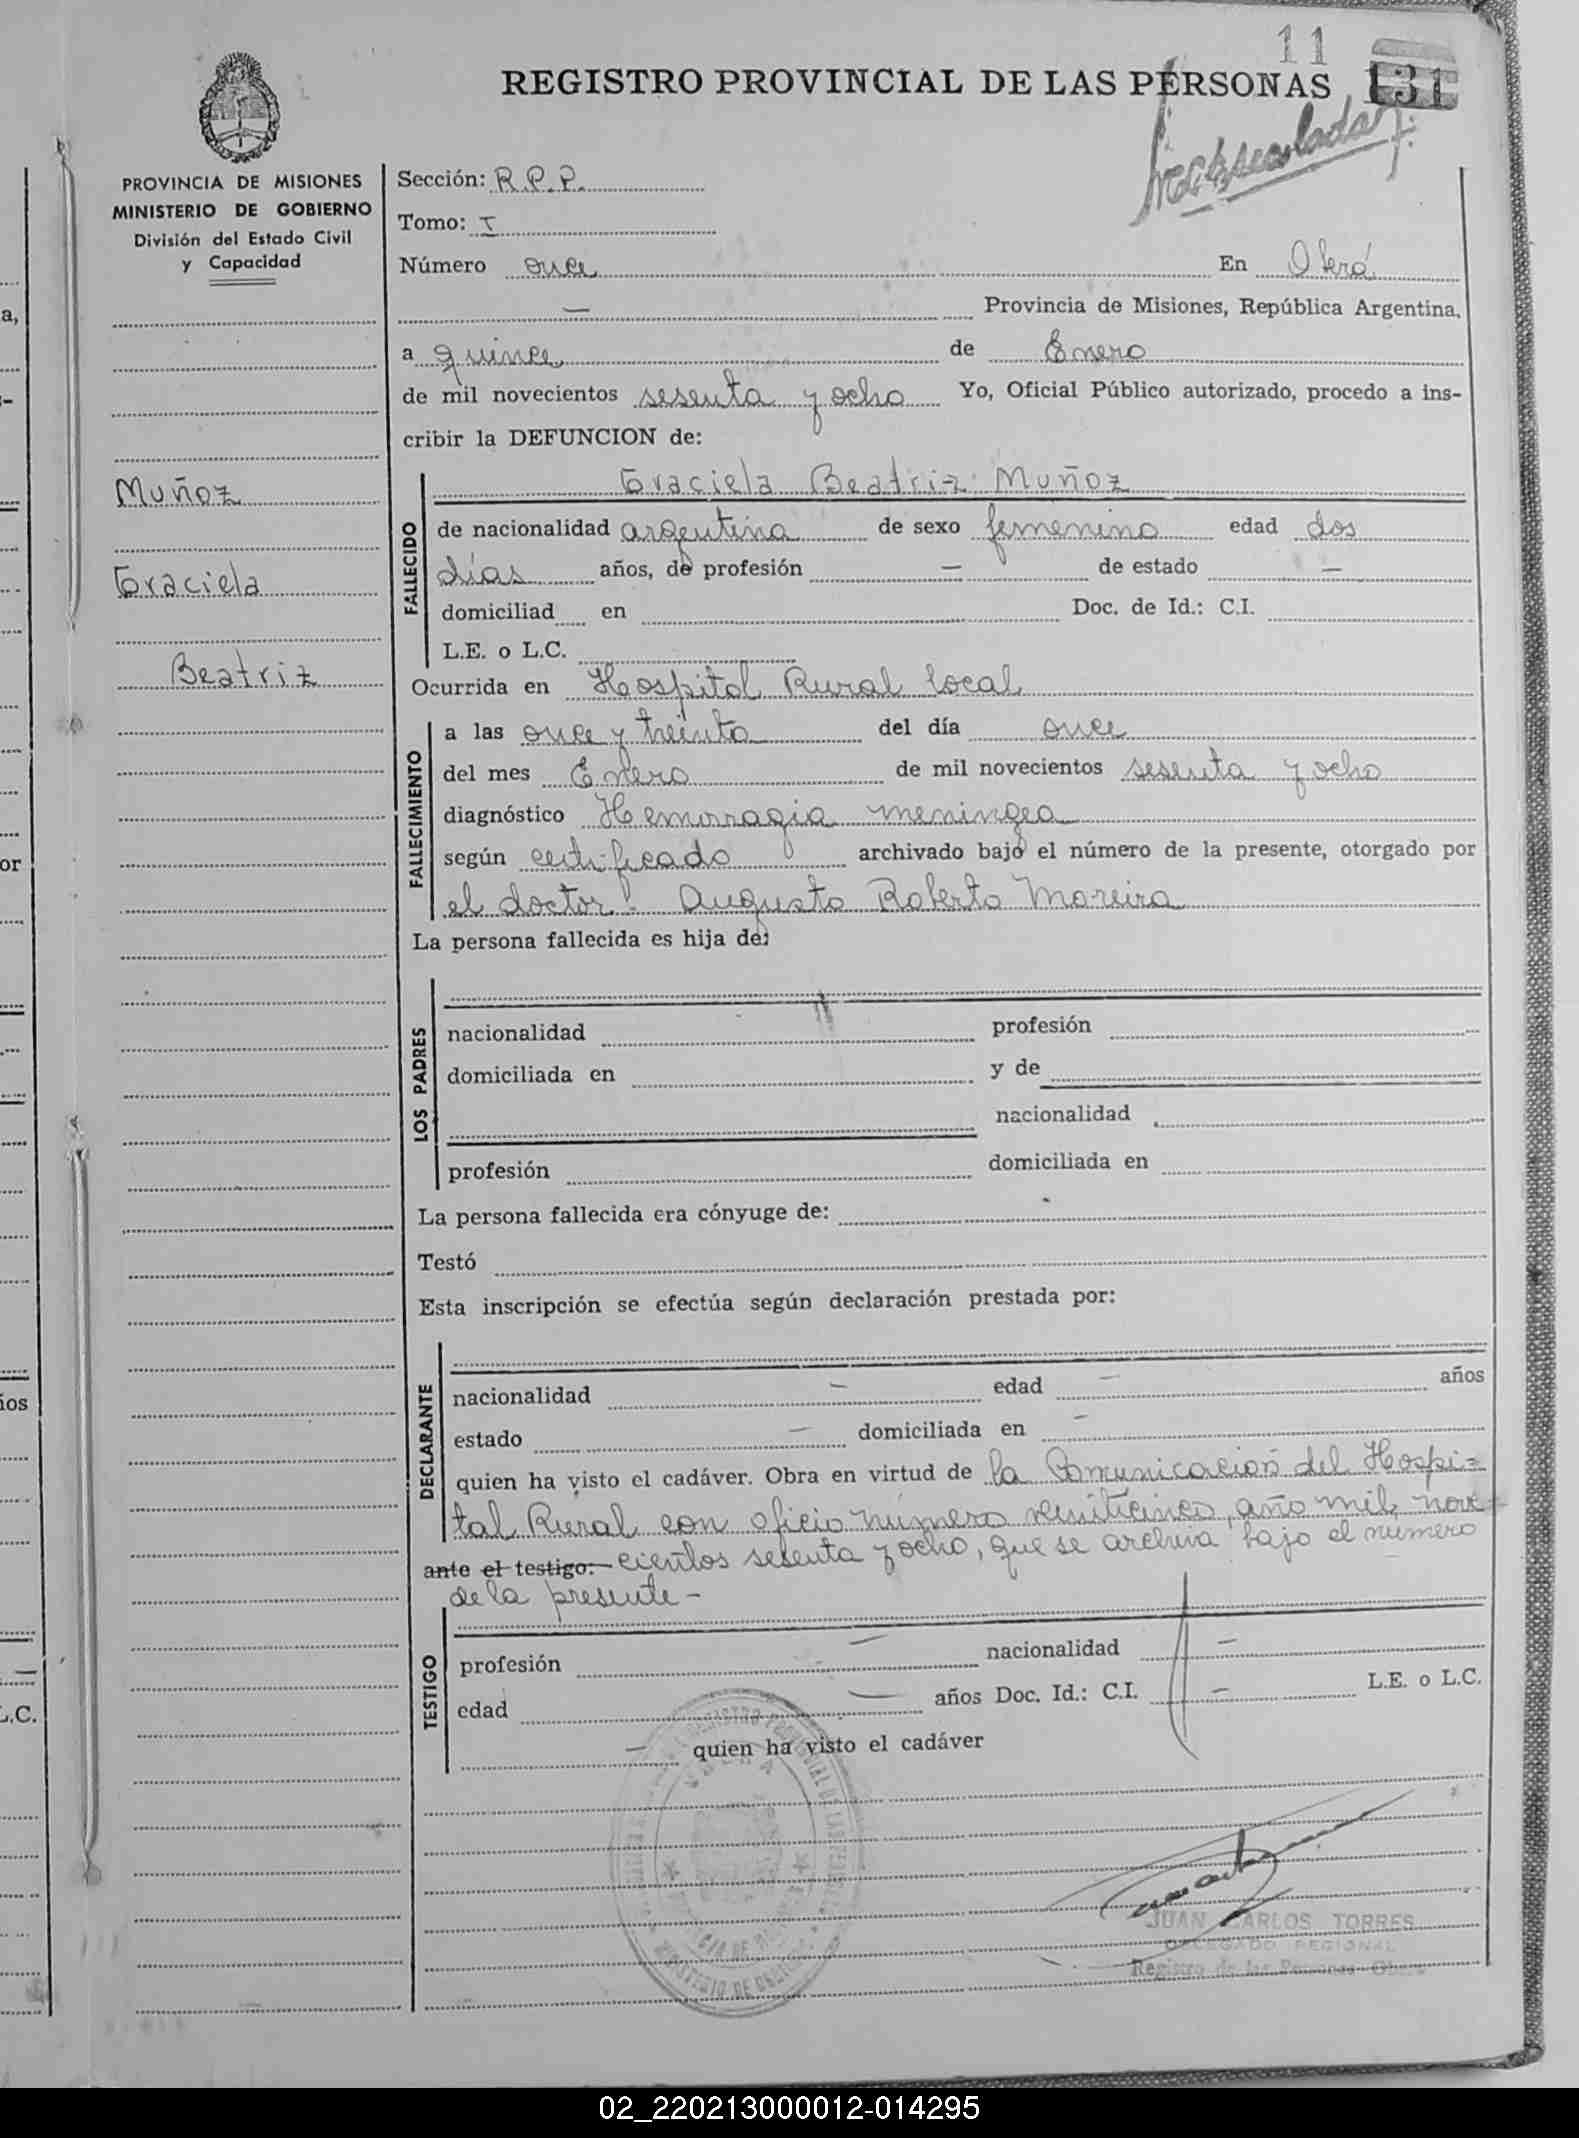 11
REGISTRO PROVINCIAL DE LAS PERSONAS 131
PROVINCIA DE MISIONES
MINISTERIO DE GOBIERNO
División del Estado Civil
y Capacidad
Muñoz
Graciela
Beatriz
Sección: R.P.P.
Tomo: I
Número once En Oberá
— Provincia de Misiones, República Argentina,
a quince de Enero
de mil novecientos sesenta y ocho Yo, Oficial Público autorizado, procedo a ins-
cribir la DEFUNCION de:
FALLECIDO
Graciela Beatriz Muñoz
de nacionalidad argentina de sexo femenino edad dos
días años, de profesión — de estado —
domiciliad en Doc. de Id.: C.I.
L.E. o L.C.
Ocurrida en Hospital Rural local
FALLECIMIENTO
a las once y treinta del día once
del mes Enero de mil novecientos sesenta y ocho
diagnóstico Hemorragia meningea
según certificado archivado bajo el número de la presente, otorgado por
el doctor: Augusto Roberto Moreira
La persona fallecida es hija de:
LOS PADRES
nacionalidad profesión
domiciliada en y de
nacionalidad
profesión domiciliada en
La persona fallecida era cónyuge de:
Testó
Esta inscripción se efectúa según declaración prestada por:
DECLARANTE
nacionalidad — edad — años
estado — domiciliada en —
quien ha visto el cadáver. Obra en virtud de la Comunicación del Hospi=
tal Rural con oficio número veinticinco, año mil nove=
ante el testigo: cientos sesenta y ocho, que se archiva bajo el número
de la presente -
TESTIGO
profesión — nacionalidad —
edad — años Doc. Id.: C.I. — L.E. o L.C.
— quien ha visto el cadáver
JUAN CARLOS TORRES
DELEGADO REGIONAL
Registro de las Personas Oberá
02_220213000012-014295